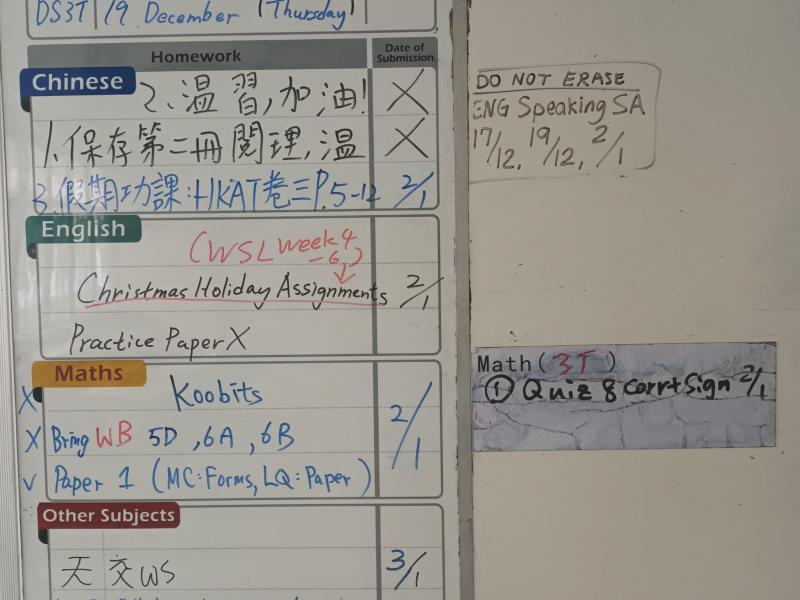 DS3T 19 December (Thursday)
Homework
Date of Submission
Chinese
2.温習,加油! X
1.保存第二冊閱理,温 X
3.假期功課:HKAT卷三P.5-12 2/1
English
(WSL week4
-6)
Christmas Holiday Assignments 2/1
Practice Paper X
Maths
X Koobits
X Bring WB 5D, 6A, 6B 2/1
√ Paper 1 (MC:Forms, LQ:Paper)
Other Subjects
天 交WS 3/1
DO NOT ERASE
ENG Speaking SA
17/12, 19/12, 2/1
Math (3T)
① Quiz 8 corr+Sign 2/1